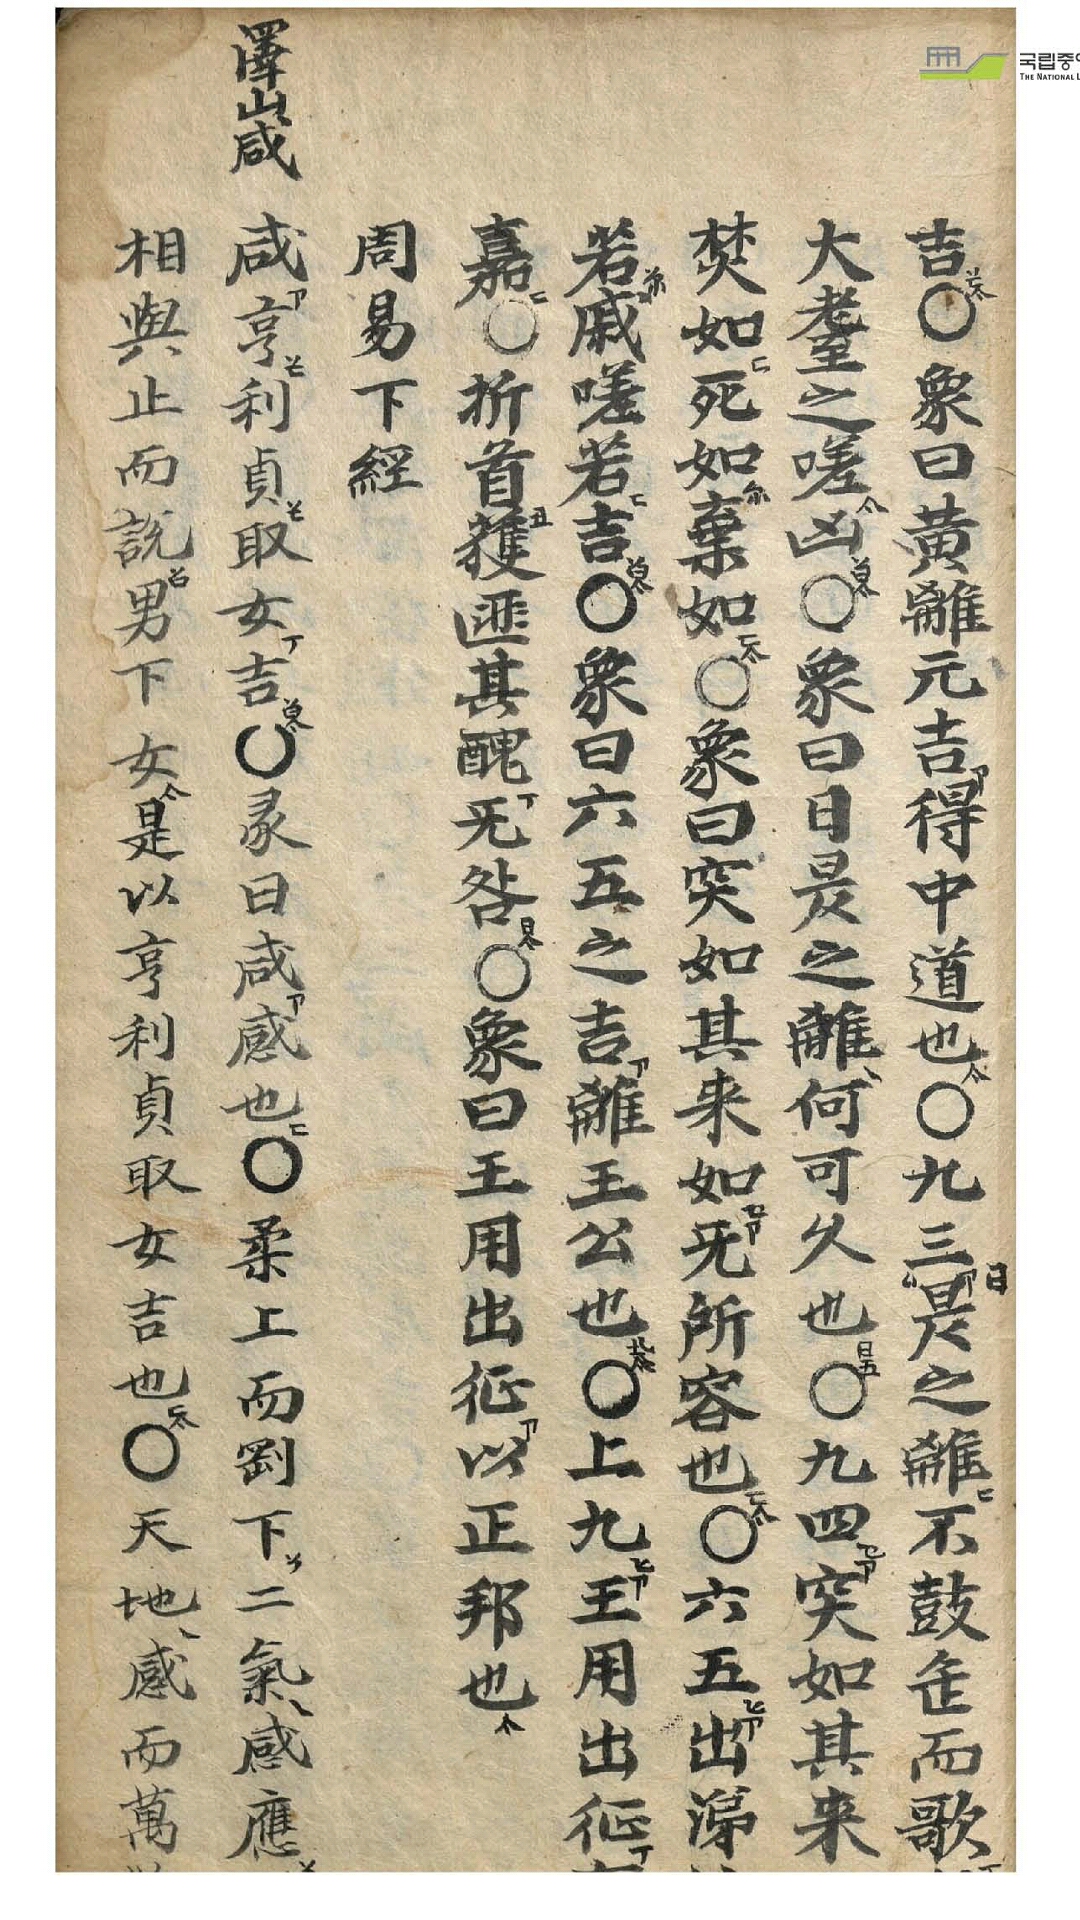 국립중
THE NATIONAL L
吉○象曰黃離元吉得中道也○九三日昃之離不鼓缶而歌
大耋之嗟凶○象曰日昃之離何可久也○九四突如其来
焚如死如棄如○象曰突如其来如无所容也○六五出涕
若戚嗟若吉○象曰六五之吉離王公也○上九王用出征
嘉○折首獲匪其醜无咎○象曰王用出征以正邦也
周易下經
澤山咸
咸亨利貞取女吉○彖曰咸感也○柔上而剛下二氣感應
相與止而說男下女是以亨利貞取女吉也○天地感而萬